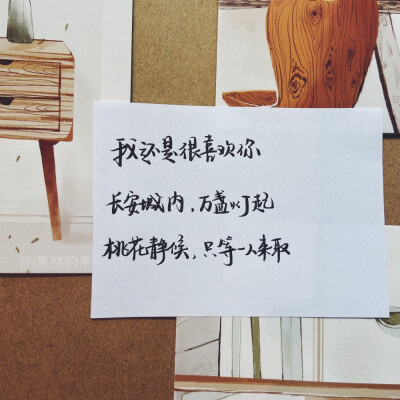 我还是很喜欢你
长安城内，万盏灯起
桃花静候，只等一人来取